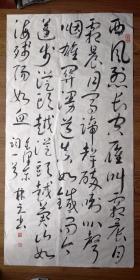 西风烈长空雁叫霜晨月
霜晨月马蹄声碎喇叭声
咽雄关漫道真如铁而今
迈步从头越从头越苍山如
海残阳如血
词一首